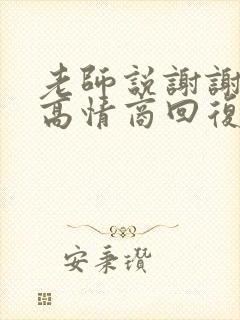 老師説謝謝
高情商回復
安秉瓚